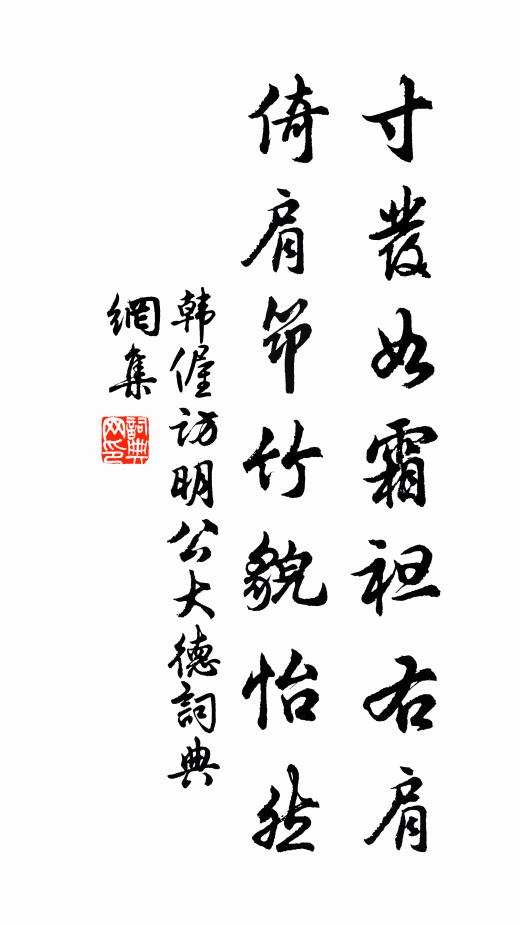 寸發如霜袒右肩
倚肩筇竹貌怡然
韩偓访明公大德詞典
網集
詞典
网印